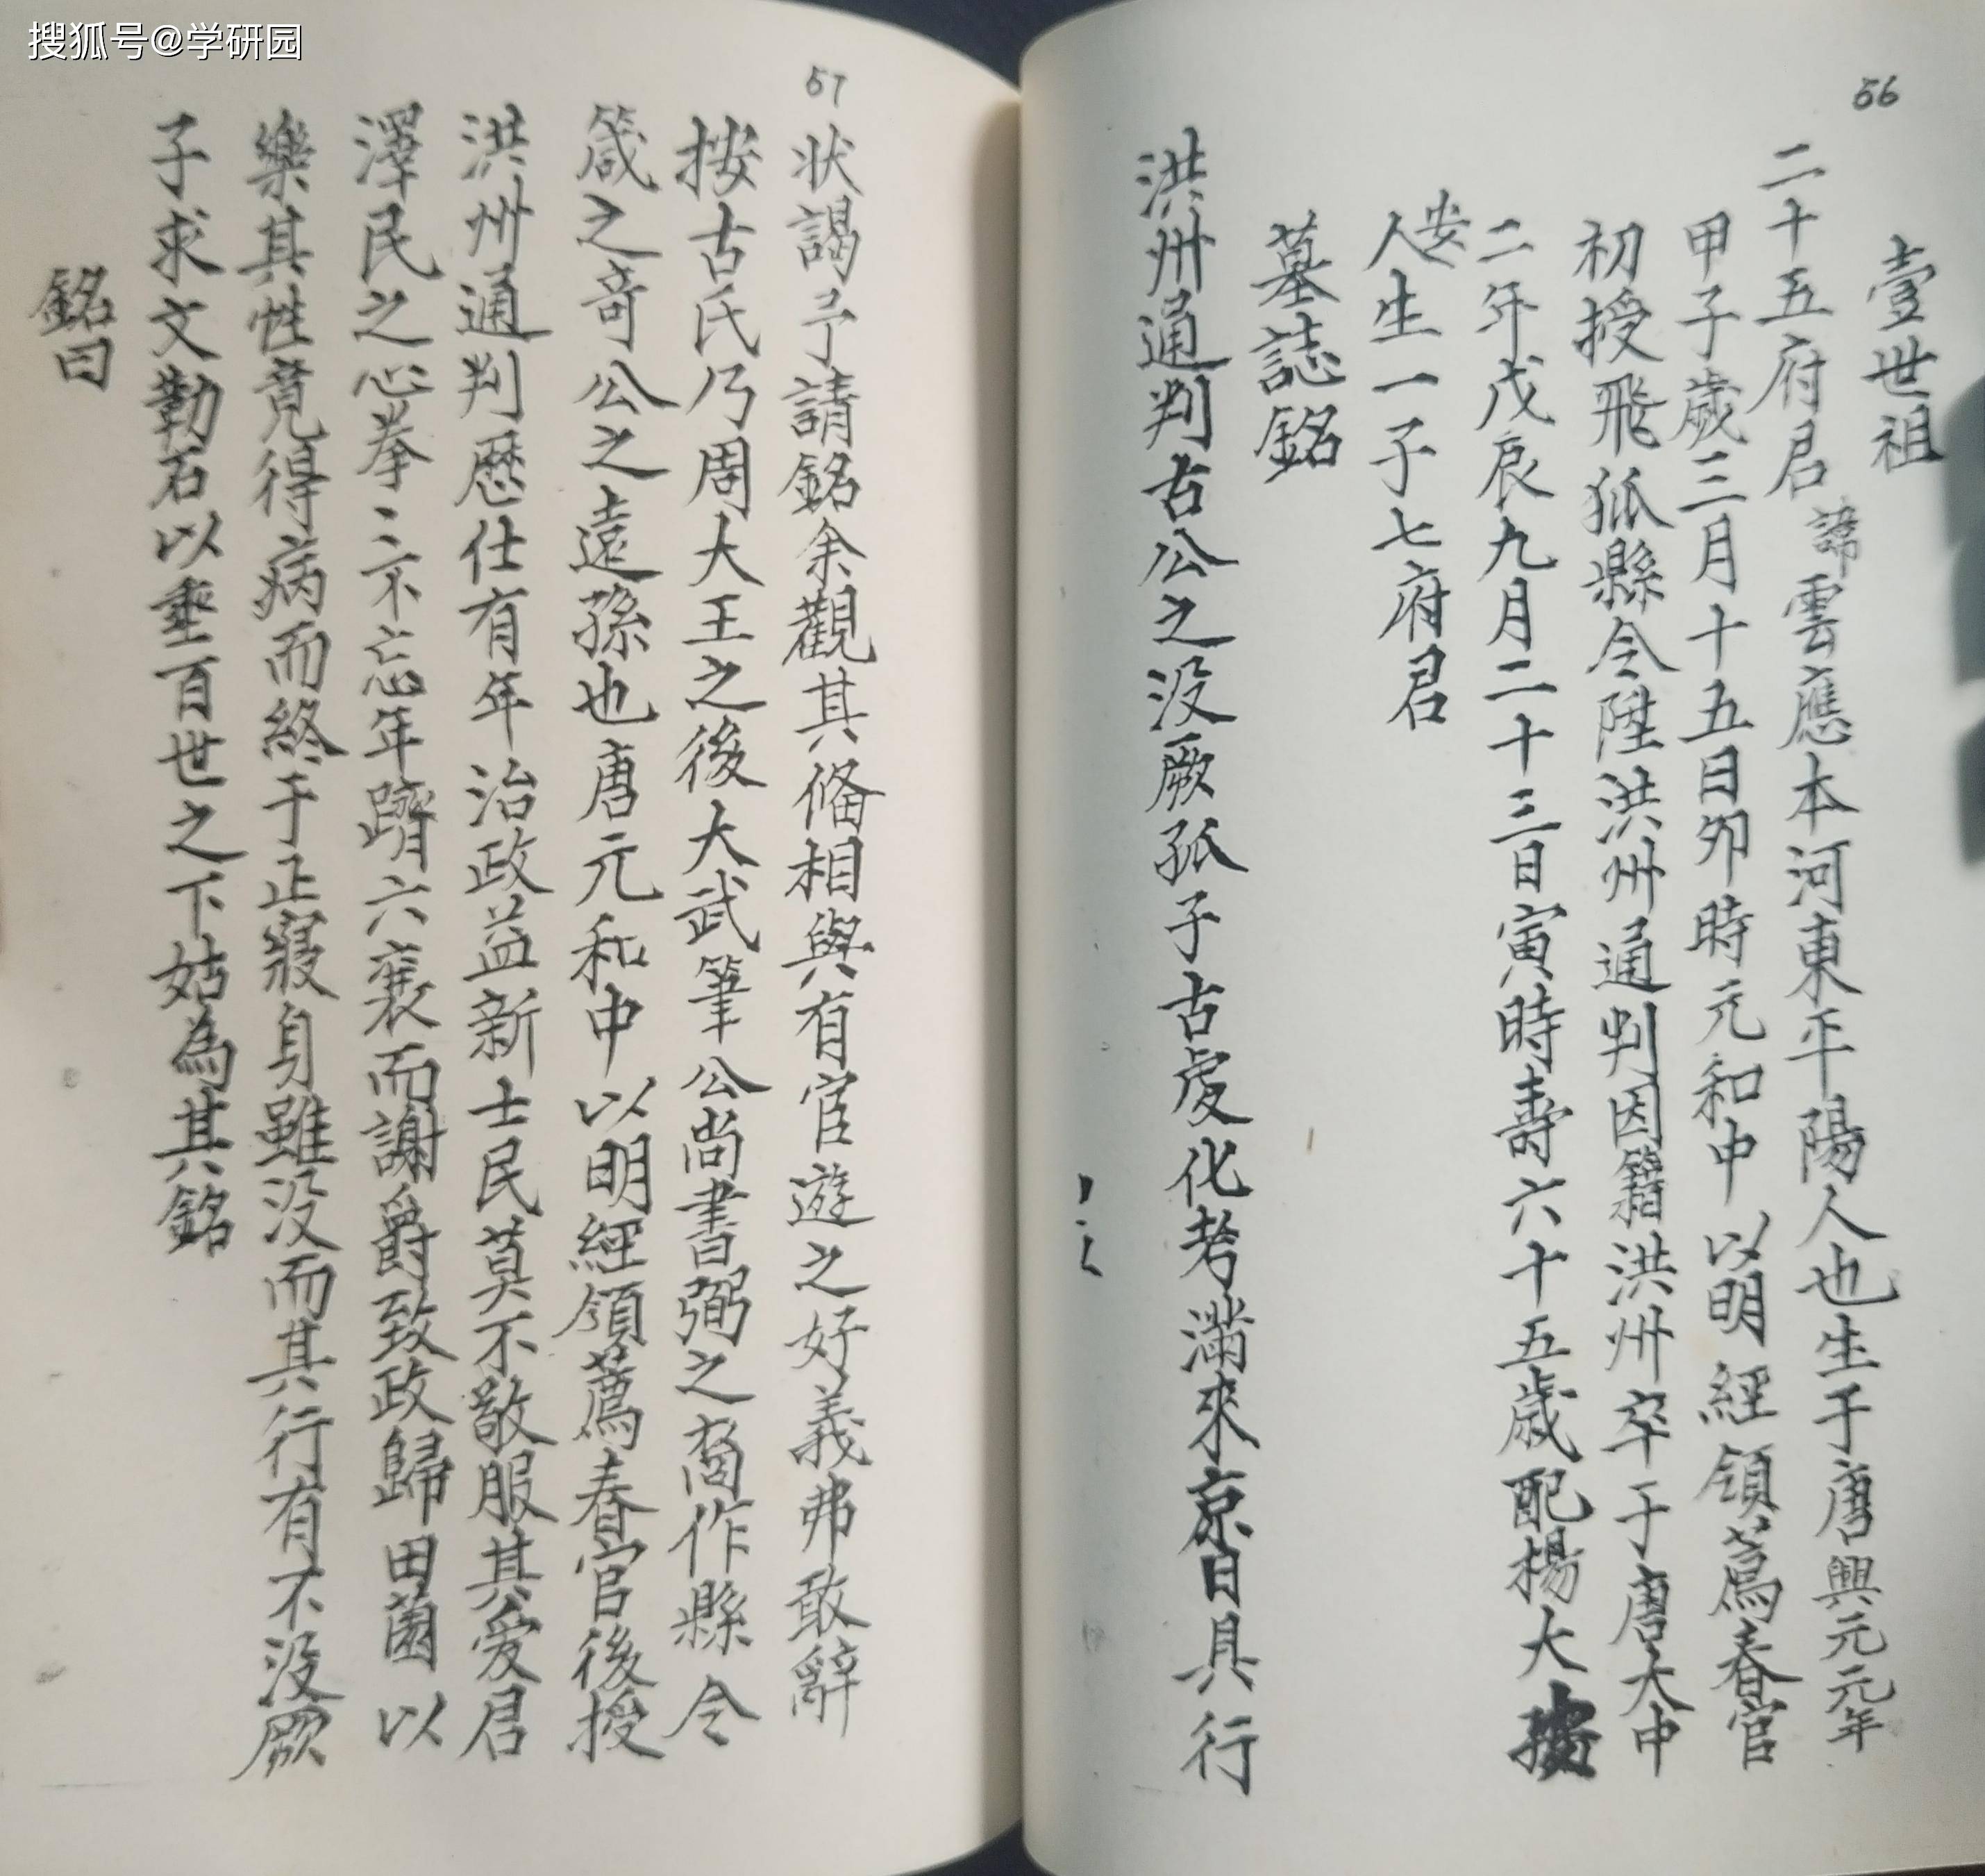 搜狐号@学研园
56
壹世祖
二十五府君諱雲應本河東平陽人也生于唐興元元年
甲子歲三月十五日卯時元和中以明經領薦春官
初授飛狐縣令陞洪州通判因籍洪州卒于唐大中
二年戊辰九月二十三日寅時壽六十五歲配楊大
安
人生一子七府君
墓誌銘
洪州通判古公之没厥孤子古虔化考滿來京日具行
57
状謁予請銘余觀其脩相與有官遊之好義弗敢辭
按古氏乃周大王之後大武筆公尚書弼之裔作縣令
箴之奇公之遠孫也唐元和中以明經領薦春官後授
洪州通判歷仕有年治政益新士民莫不敬服其爱君
澤民之心拳〻不忘年躋六袠而謝爵致政歸田園以
樂其性竟得病而終于正寢身雖没而其行有不没厥
子求文勒石以垂百世之下姑為其銘
銘曰